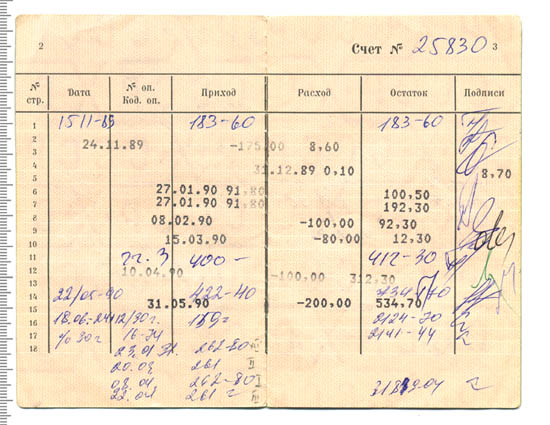 2
Счет № 25830 3
№ стр. Дата № оп. Код. оп. Приход Расход Остаток Подписи
1 15 11-89 183-60 183-60
2 24.11.89 -175,00 8,60
3
4 31.12.89 0,10 8,70
5
6 27.01.90 91,80 100,50
7 27.01.90 91,80 192,30
8 08.02.90 -100,00 92,30
9
10 15.03.90 -80,00 12,30
11 400- 412-30
12 10.04.90 -100,00 312,30
13
14 22/05-90 422-40
15 31.05.90 -200,00 534,70
16 2124-70
17 16-74 2141-44
18 262-80
20.03 261
03.04 262-80
22.04 261